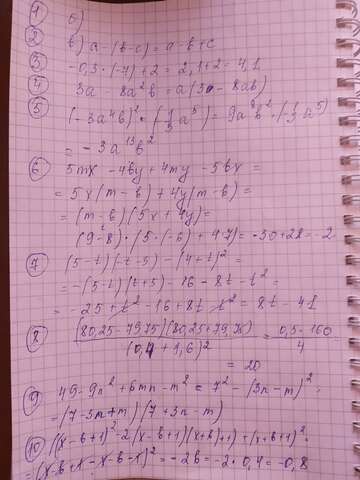 1 б)
2 в) a-(b-c) = a-b+c
3 -0,3·(-7)+2 = 2,1+2 = 4,1
4 3a - 8a²b = a(3 - 8ab)
5 (-3a⁴b)² · (-1/3 a⁵) = 9a⁸b² · (-1/3 a⁵)
= -3a¹³b²
6 5mx - 4by + 4my - 5bx =
= 5x(m-b) + 4y(m-b) =
= (m-b)(5x+4y) =
(9-8)·(5·(-6)+4·7) = -30+28 = -2
7 (5-t)(t-5) - (4+t)² =
= -(5-t)(t+5) - 16 - 8t - t² =
= -25 + t² - 16 + 8t - t² = 8t - 41
8 (80,25-79,75)(80,25+79,75) / (0,4+1,6)² = 0,5·160 / 4
= 20
9 49 - 9n² + 6mn - m² = 7² - (3n-m)² =
-(7-3n+m)(7+3n-m)
10 ((x-b+1)² - 2(x-b+1)(x+b+1) + (x+b+1)² =
= (x-b+1-x-b-1)² = -2b = -2·0,4 = -0,8